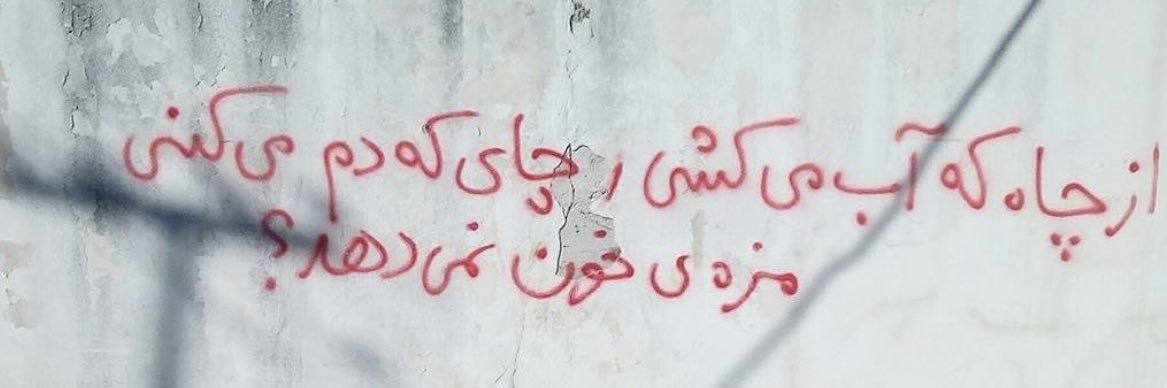 از چاه که آب می‌کشی، چای که دم می‌کنی
مزه‌ی خون نمی‌دهد؟